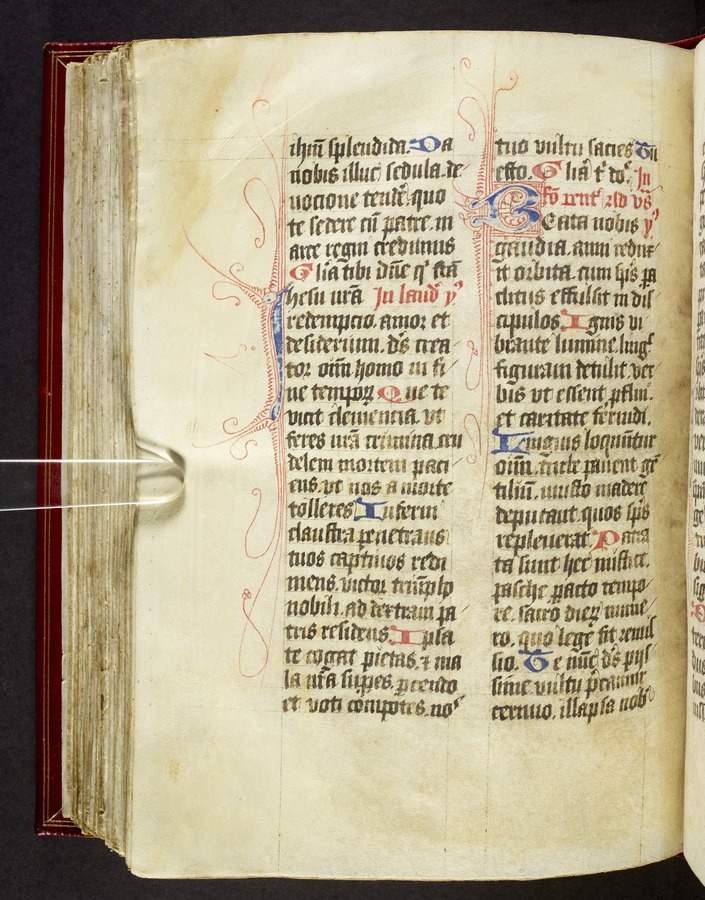 ihm splendida. Da
nobis illuc sedula de
uocione tendẽ. quo
te sedere cũ patre. in
arce regni credimus
Glĩa tibi dñe qͥ scã
In laud yᵖ
Jhesu nr̃a
redempcio. amor et
desiderium. ds̃ crea
tor oĩm homo in fi
ne temporꝝ Que te
vicit clemencia. vt
ferres nr̃a crimina. cru
delem mortem paci
ens. vt nos a morte
tolleres Inferni
claustra penetrans
tuos captiuos redi
mens. victor triũpho
nobili. ad dextram pa
tris residens. Ipsa
te cogat pietas. ⁊ ma
la nr̃a supes. ꝑcendo
et voti compotes. noˢ
tuo vultu sacies Tu
esto. Glĩa t̃ dõ. In
Beata nobis yᵖ
gaudia. anni redux
it orbita. cum sps̃ pa
clitus effulsit in dis
cipulos. Ignis vi
brante lumine. ling̃
figuram detulit. ver
bis vt essent ꝓflui.
et caritate feruidi.
Linguis loquũtur
oĩm. turbe pauent gẽ
tiliũ. musto madere
deputant. quos sps̃
repleuerat. Patra
ta sunt hec mistice.
pasche ꝑacto tempo
re. sacro dierꝝ nume
ro. quo lege fit remis
sio. Te nũc ds̃ pijs
sime. vultu ꝑcamur
cernuo. illapsa nob̃